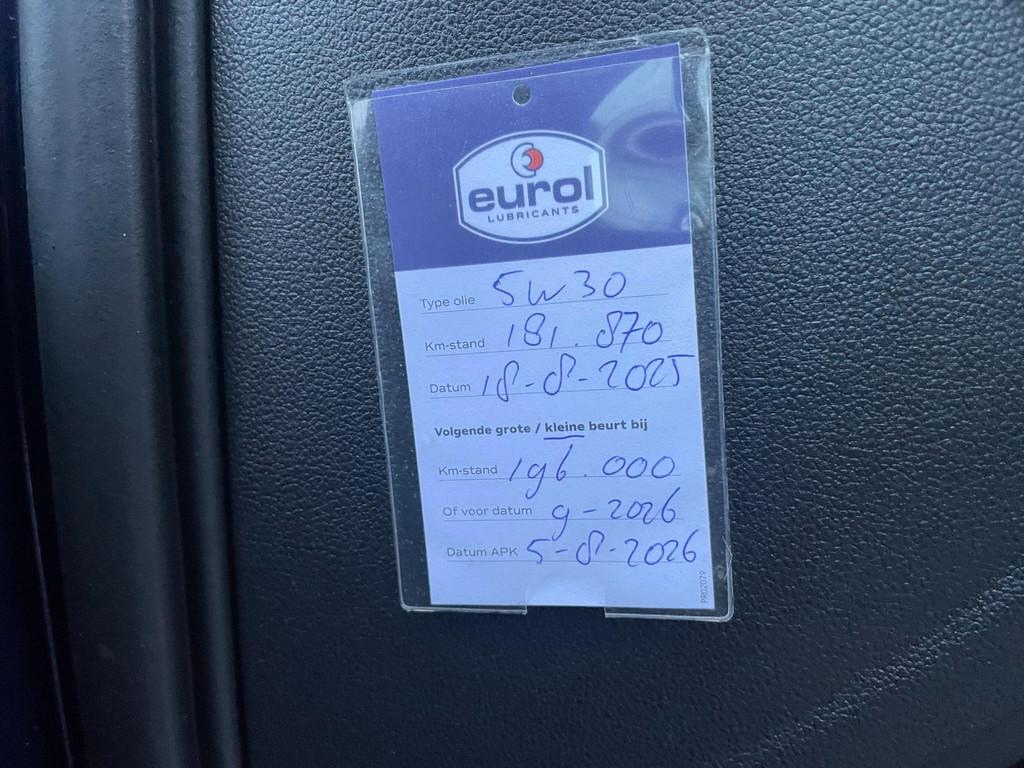 eurol
LUBRICANTS
Type olie 5W30
Km-stand 181.870
Datum 18-8-2025
Volgende grote / kleine beurt bij
Km-stand 196.000
Of voor datum 9-2026
Datum APK 5-8-2026
PR02079